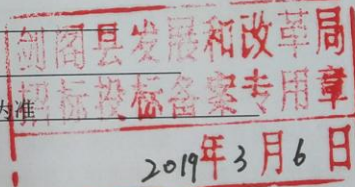 剑阁县发展和改革局
招标投标备案专用章
为准
2019年3月6日